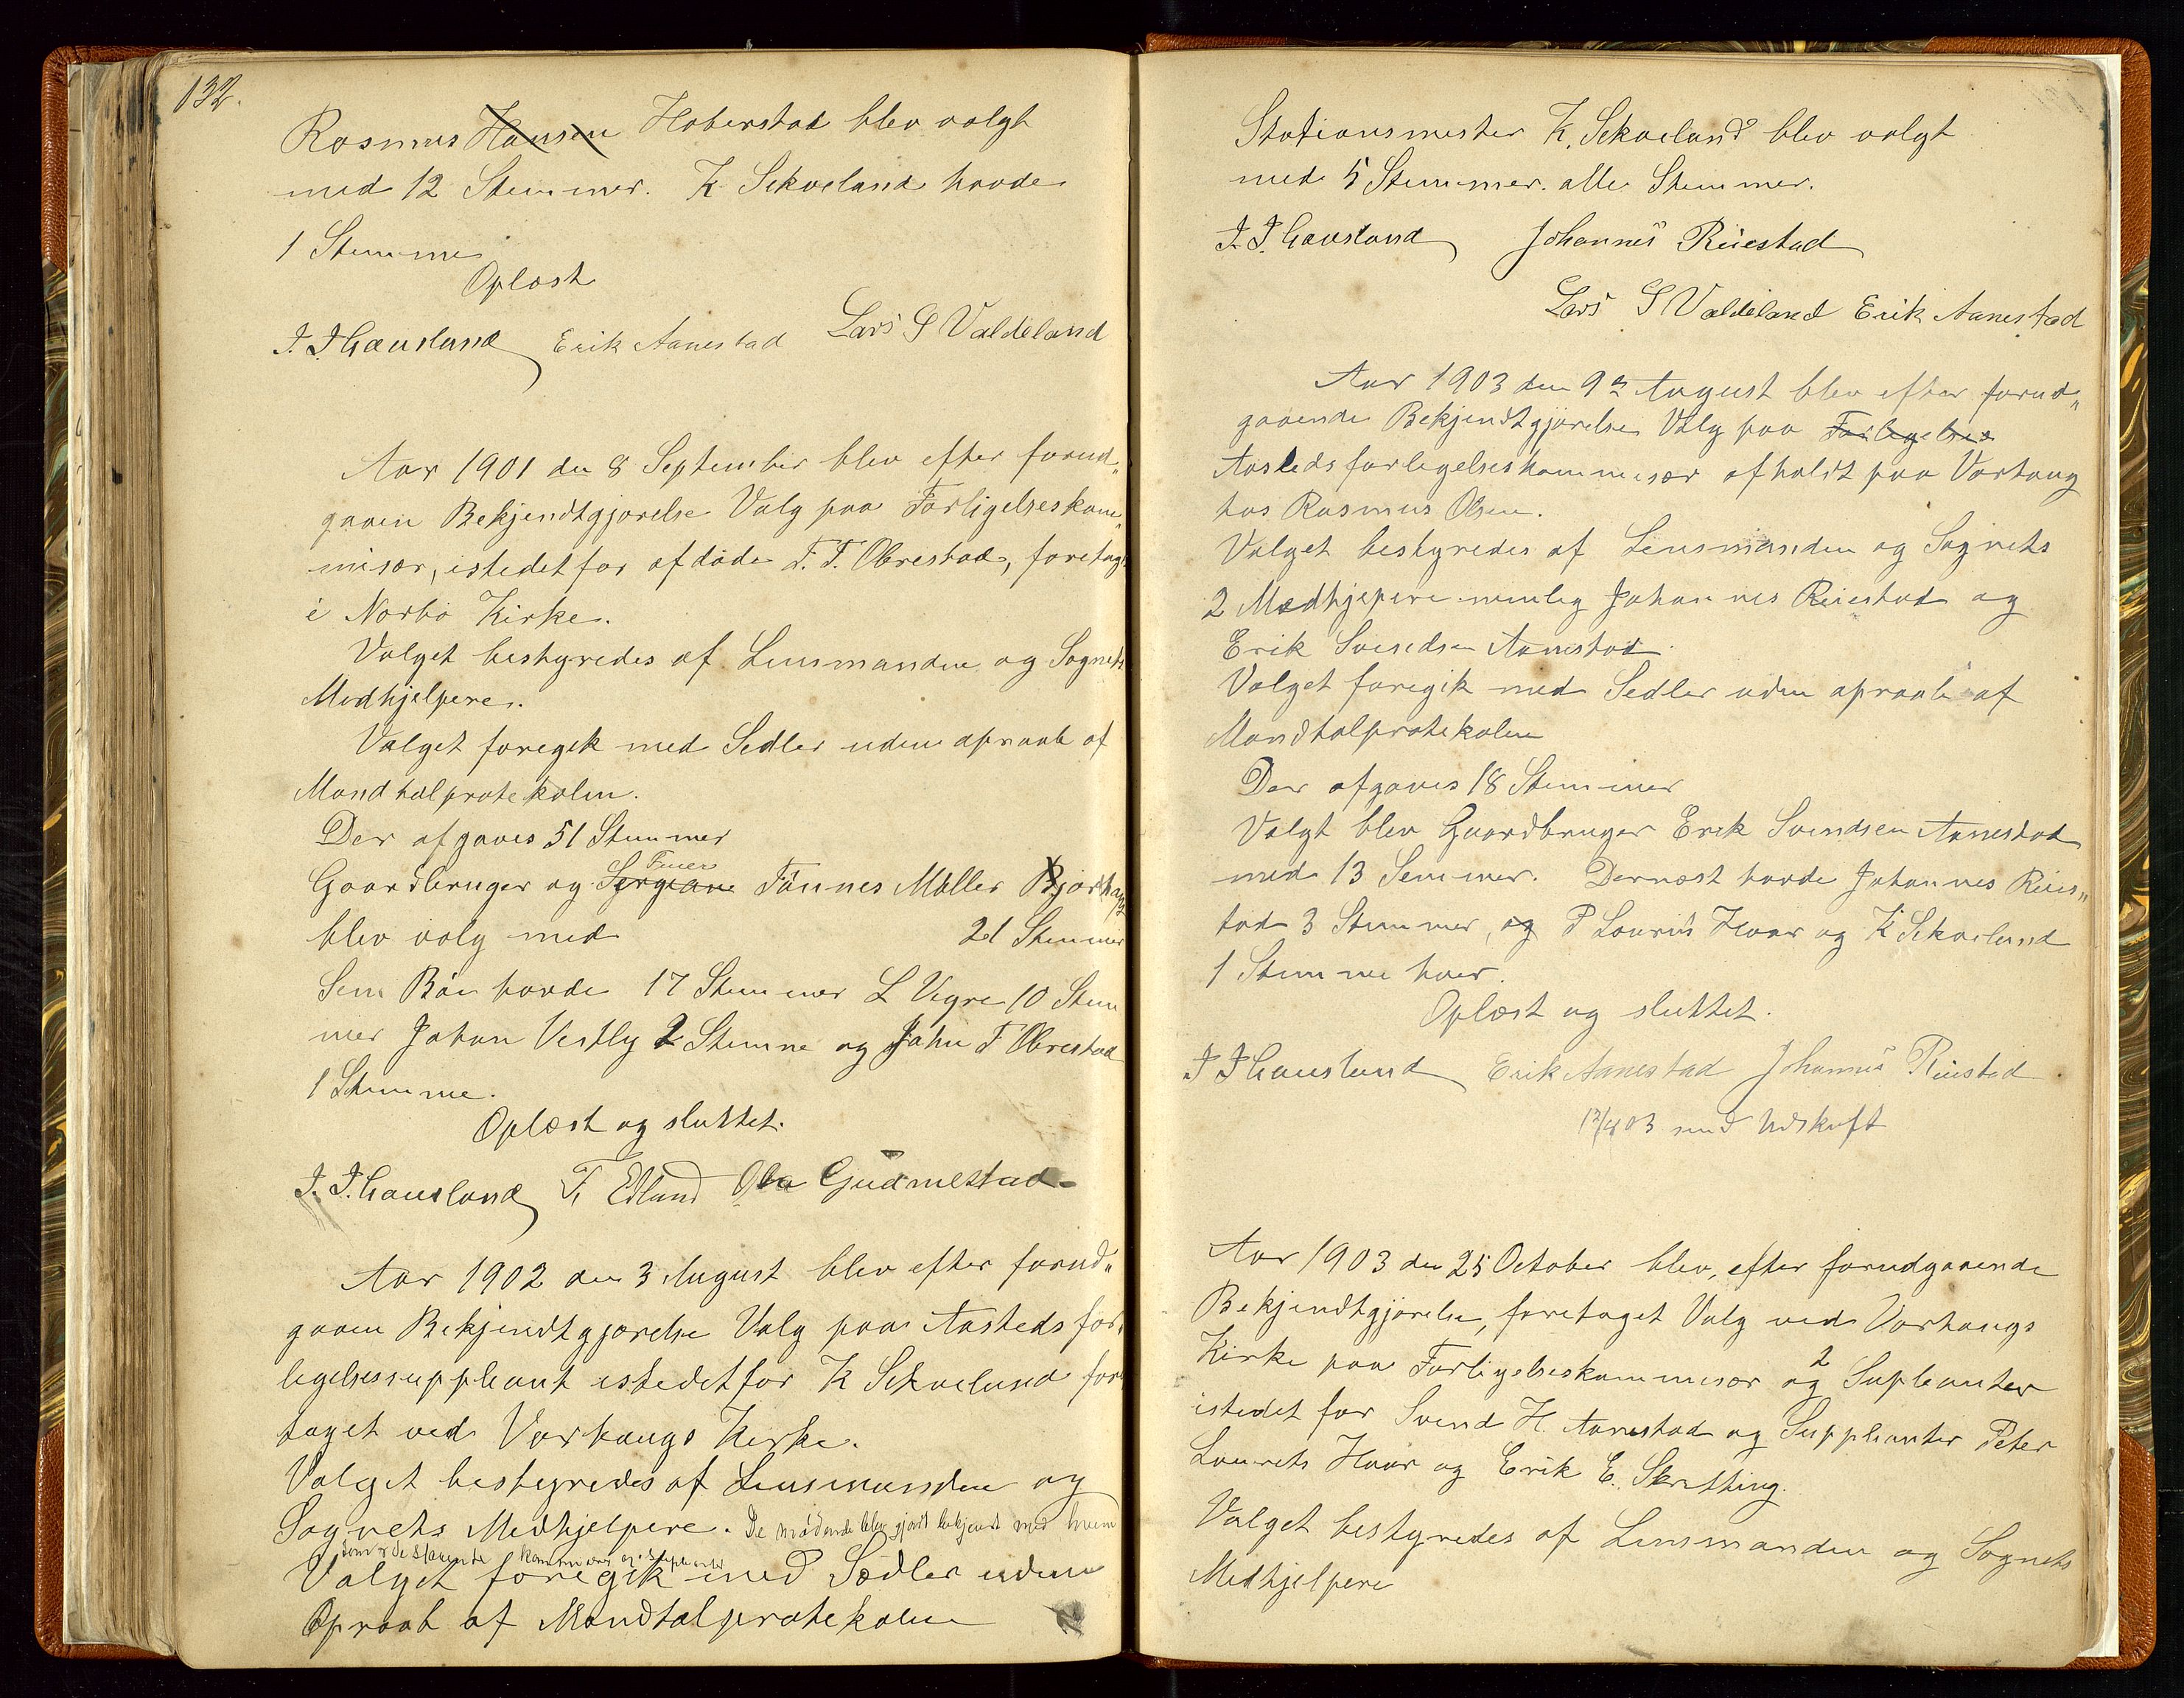 132.
Rasmus Hansen Haberstad blev valgt
med 12 Stemmer. K Sekveland havde
1 Stemme
Oplæst
J. J Gausland Erik Aanestad Lars S Valdeland
Aar 1901 den 8 September blev efter forud„
gaaen Bekjendtgjørelse Valg paa Forligelseskom„
misær, istedetfor afdøde T. T. Obrestad, foretag
i Nærbø Kirke.
Valget bestyredes af Lensmanden og Sognets
Medhjelpere.
Valget foregik med Sedler uden opraab af
Mandtalprotekolen.
Der afgaves 51 Stemmer
Gaardbruger og Tønnes Møller
blev valg med 21 Stemmer
Sem Bøe havde 17 Stemmer L Vigre 10 Stem
mer Johan Vestly 2 Stemne og John T Obrestad
1 Stemme.
Oplæst og sluttet.
J. J. Gausland T. Edland Ola Gudmestad
Aar 1902 den 3 August blev efter forud„
gaaen Bekjendtgjørelse Valg paa Aasteds for„
legelsessuppleant istedetfor K Sekveland fore
taget ved Varhaugs Kirke.
Valget bestyredes af Lensmanden og
Sognets Medhjelpere. De mødende blev gjordt bekjendt med hvem
som er de staaende kommisær og supleanter
Valget foregik med Sedler uden
Opraab af Mandtalprotekolen
Stationsmester K. Sekveland blev valgt
med 5 Stemmer. alle Stemmer.
J. J. Gausland Johannes Reiestad
Lars S Valdeland Erik Aanestad
Aar 1903 den 9de August blev efter forud„
gaaende Bekjendtgjørelse Valg paa Forligelses
Aasteds forlegelseskommisær afholdt paa Varhaug
hos Rasmus Olsen.
Valget bestyredes af Lensmanden og Sognets
2 Medhjepere nemlig Johannes Reiestad og
Erik Svendsen Aanestad.
Valget foregik med Sedler uden opraab af
Mandtalprotekolen
Der afgaves 18 Stemmer
Valgt blev Gaardbruger Erik Svendsen Aanestad
med 13 Semmer. Dernæst havde Johannes Reies„
tad 3 Stemmer, og P Laurits Haar og K Sekveland
1 Stemme hver.
Oplæst og sluttet.
J J Gausland Erik Aanestad Johannes Reiestad
13/8 03 send Udskrift
Aar 1903 den 25 October blev, efter forudgaaende
Bekjendtgjørelse, foretaget Valg ved Varhaugs
Kirke paa Forligelseskommisær og 2 Supleanter
istedet for Svend H. Aanestad og Suppleanter Peter
Laurets Haar og Erik E. Skretting.
Valget bestyredes af Lensmanden og Sognets
Medhjelpere